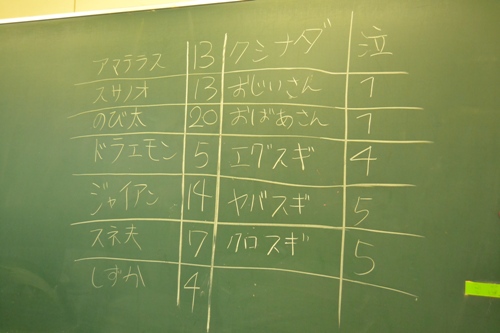 アマテラス 13 クシナダ 泣
スサノオ 13 おじいさん 1
のび太 20 おばあさん 1
ドラエモン 5 エグスギ 4
ジャイアン 14 ヤバスギ 5
スネ夫 7 クロスギ 5
しずか 4